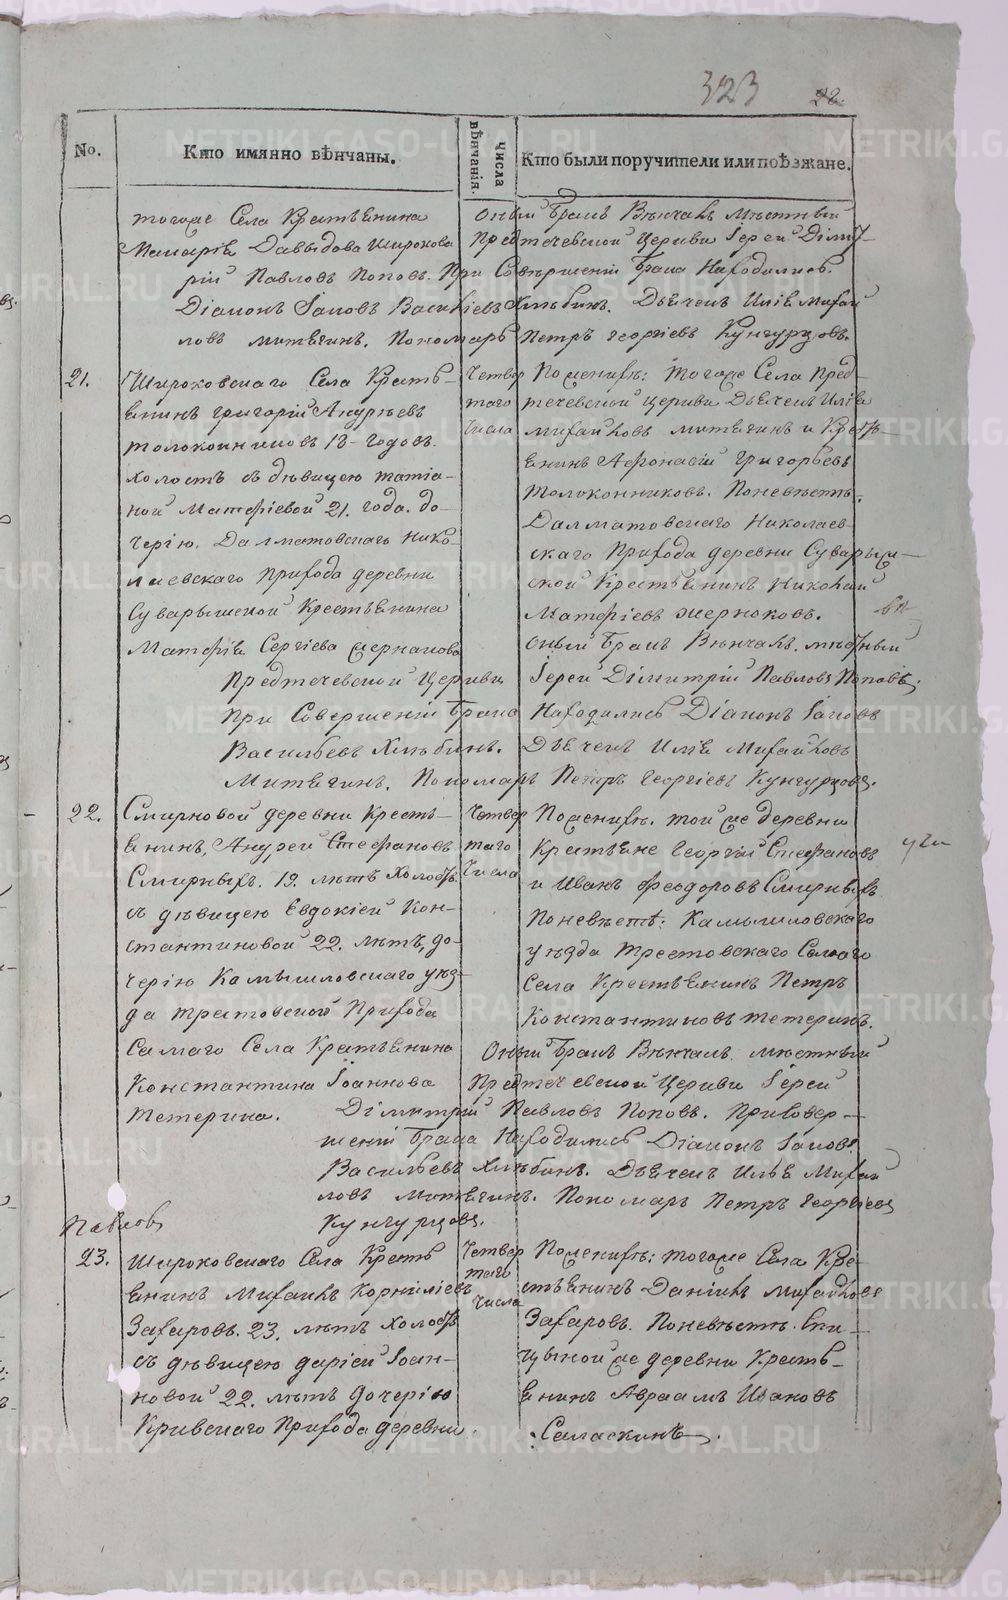 323 22.
No.
Кто имянно вѣнчаны.
числа вѣнчанія.
Кто были поручители или поѣзжане.
тогоже Села Крестьянина
Давыдова Широкова
рій Павловъ Поповъ. При Совершеніи Брака Находились
Діаконъ Іаковъ Васильевъ Хлѣбинъ. Дьячекъ Илія Михай
ловъ Митягинъ. Пономарь Петръ Георгіевъ Кунгурцовъ.
Оный Бракъ Вѣнчалъ мѣстный
Предтечевской Церкви Іерей Діми-
21.
Широковскаго Села Кресть-
янинъ Григорій Андреевъ
Толоконниковъ 18 годовъ
холостъ съ дѣвицею Татіа-
ной Матфіевой 21. года. до-
черію. Далматовскаго Нико-
лаевскаго Прихода деревни
Суварышской Крестьянина
Матфія Сергіева
Предтечевской Церкви
При Совершеніи Брака
Васильевъ Хлѣбинъ.
Митягинъ. Пономарь
Четвер
таго
Числа
По женихѣ: тогоже Села Пред-
течевской церкви Дьячекъ Илія
Михайловъ Митягинъ и Кресть-
янинъ Афонасій Григорьевъ
Толоконниковъ. По невѣстѣ.
Далматовскаго Николаев-
скаго Прихода деревни Суварыш-
ской Крестьянинъ Николай
Матфіевъ Жерноковъ.
Оный Бракъ Вѣнчалъ. мѣстный
Іерей Дімитрій Павловъ Поповъ.
Находились Діаконъ Іаковъ
Дьячекъ Илія Михайловъ
Петръ Георгіевъ Кунгурцовъ.
22.
Смирновой деревни Кресть-
янинъ, Андрей Стефановъ
Смирныхъ. 19. лѣтъ Холостъ
съ дѣвицею Евдокіей Кон-
стантиновой 22. лѣтъ, до-
черію Камышловскаго уѣз-
да Трестовской Прихода
Самаго Села Крестьянина
Константина Іоаннова
Тетерина.
Четвер
таго
Числа
По женихѣ. той же деревни
Крестьяне Георгій Стефановъ
и Иванъ Феодоровъ Смирныхъ
По невѣстѣ: Камышловскаго
уѣзда Трестовскаго Самаго
Села Крестьянинъ Петръ
Константиновъ Тетеринъ.
Оный Бракъ Вѣнчалъ. мѣстный
Предтечевской Церкви Іерей
Дімитрій Павловъ Поповъ. При Совер-
шеніи Брака Находились Діаконъ Іаковъ
Васильевъ Хлѣбинъ. Дьячекъ Илья Михай
ловъ Митягинъ. Пономарь Петръ Георгіевъ
Кунгурцовъ.
Павловъ
23.
Широковскаго Села Кресть
янинъ Михаилъ Корниліевъ
Захаровъ. 23. лѣтъ холостъ
съ дѣвицею Даріей Іоан-
новой 22. лѣтъ дочерію
Кривскаго Прихода деревни
Четвер
таго
Числа
По женихѣ: тогоже Села Кре-
стьянинъ Даніилъ Михайловъ
Захаровъ. По невѣстѣ.
цыной же деревни Кресть-
янинъ Авраамъ
Саласкинъ.
METRIKI.GASO-URAL.RU